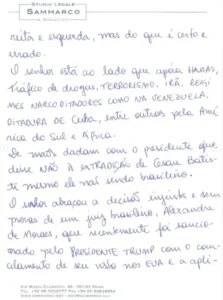 STUDIO LEGALE
SAMMARCO
reita e esquerda, mas do que é certo e
errado.
O senhor está ao lado que apóia HAMAS,
Tráfico de drogas, TERRORISMO, IRÃ, REGI-
MES NARCODITADORES COMO NA VENEZUELA,
DITADURA DE Cuba, entre outros pela Amé-
rica do Sul e África.
De mãos dadas com o presidente que
disse NÃO à EXTRADIÇÃO de Cesare Battis-
ti mesmo ele não sendo brasileiro.
O senhor abraçou a decisão injusta e sem
provas de um juiz brasileiro, Alexandre
de Moraes, que recentemente foi sancio-
nado pelo PRESIDENTE TRUMP com o can-
celamento de seu visto nos EUA e a apli-